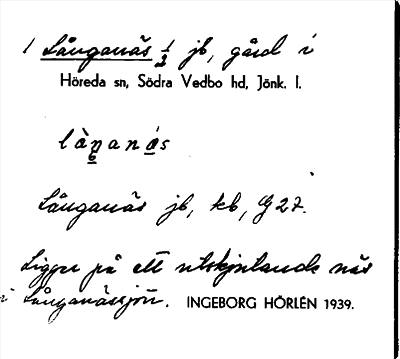 1 Långanäs 1/2 jb, gård i
Höreda sn, Södra Vedbo hd, Jönk. l.
Långanäs jb, kb, G 27.
Ligger på ett utskjutande näs
i Långanässjön. INGEBORG HÖRLÉN 1939.